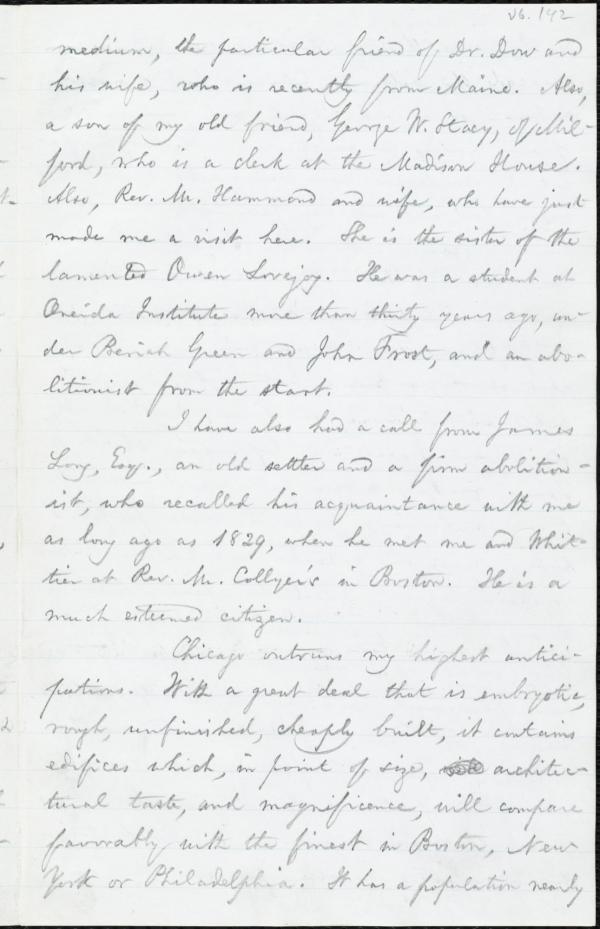 v6. 142
medium, the particular friend of Dr. Dow and
his wife, who is recently from Maine. Also,
a son of my old friend, George W. Stacy, of Mil-
ford, who is a clerk at the Madison House.
Also, Rev. Mr. Hammond and wife, who have just
made me a visit here. She is the sister of the
lamented Owen Lovejoy. He was a student at
Oneida Institute more than thirty years ago, un-
der Beriah Green and John Frost, and an abo-
litionist from the start.
I have also had a call from James
Long, Esq., an old settler and a firm abolition-
ist, who recalled his acquaintance with me
as long ago as 1829, when he met me and Whit-
tier at Rev. Mr. Collyer's in Boston. He is a
much esteemed citizen.
Chicago outruns my highest antici-
pations. With a great deal that is embryotic,
rough, unfinished, cheaply built, it contains
edifices which, in point of size, architec-
tural taste, and magnificence, will compare
favorably with the finest in Boston, New
York or Philadelphia. It has a population nearly